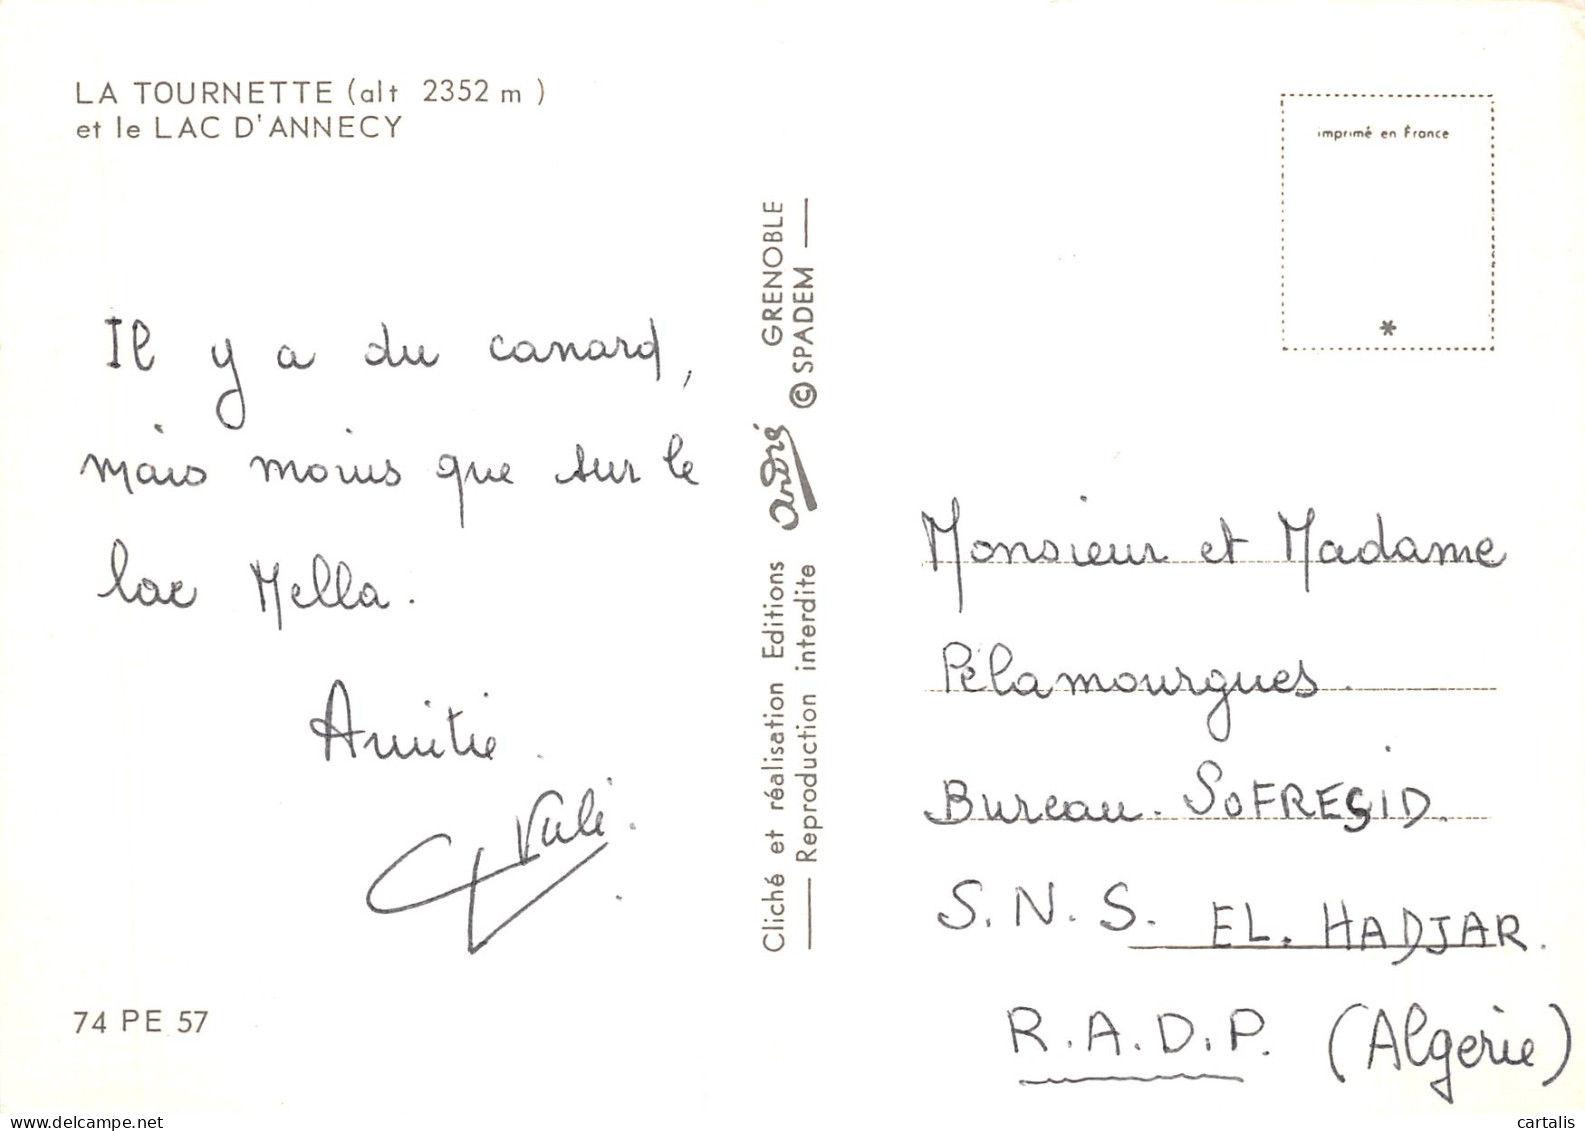 LA TOURNETTE (alt 2352 m )
et le LAC D'ANNECY
Il y a du canard,
mais moins que sur le
lac Mella.
Amitié.
Vali.
74 PE 57
Cliché et réalisation Editions André GRENOBLE
Reproduction interdite © SPADEM
imprimé en France
*
Monsieur et Madame
Pélamourgues.
Bureau. SOFRESID.
S.N.S. EL. HADJAR.
R.A.D.P. (Algérie)
delcampe.net
cartalis